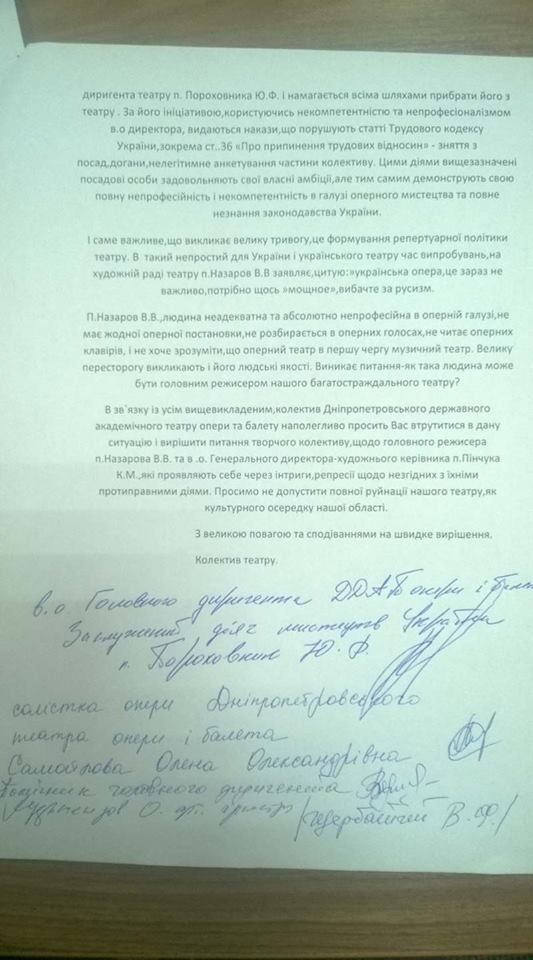 диригента театру п. Пороховника Ю.Ф. і намагається всіма шляхами прибрати його з
театру . За його ініціативою,користуючись некомпетентністю та непрофесіоналізмом
в.о директора, видаються накази,що порушують статті Трудового кодексу
України,зокрема ст..36 «Про припинення трудових відносин» - зняття з
посад,догани,нелегітимне анкетування частини колективу. Цими діями вищезазначені
посадові особи задовольняють свої власні амбіції,але тим самим демонструють свою
повну непрофесійність і некомпетентність в галузі оперного мистецтва та повне
незнання законодавства України.
І саме важливе,що викликає велику тривогу,це формування репертуарної політики
театру. В такий непростий для України і українського театру час випробувань,на
художній раді театру п.Назаров В.В заявляє,цитую:»українська опера,це зараз не
важливо,потрібно щось »мощное»,вибачте за русизм.
П.Назаров В.В.,людина неадекватна та абсолютно непрофесійна в оперній галузі,не
має жодної оперної постановки,не розбирається в оперних голосах,не читає оперних
клавірів, і не хоче зрозуміти,що оперний театр в першу чергу музичний театр. Велику
пересторогу викликають і його людські якості. Виникає питання-як така людина може
бути головним режисером нашого багатостраждального театру?
В зв`язку із усім вищевикладеним,колектив Дніпропетровського державного
академічного театру опери та балету наполегливо просить Вас втрутитися в дану
ситуацію і вирішити питання творчого колективу,щодо головного режисера
п.Назарова В.В. та в .о. Генерального директора-художнього керівника п.Пінчука
К.М.,які проявляють себе через інтриги,репресії щодо незгідних з їхніми
протиправними діями. Просимо не допустити повної руйнації нашого театру,як
культурного осередку нашої області.
З великою повагою та сподіваннями на швидке вирішення.
Колектив театру.
в.о Головного диригента ДДАТ опери і
Заслужений діяч мистецтв України
п. Пороховник Ю. Ф.
солістка опери Дніпропетровського
театра опери і балета
Самойлова Олена Олександрівна
головного диригента
В. Ф./